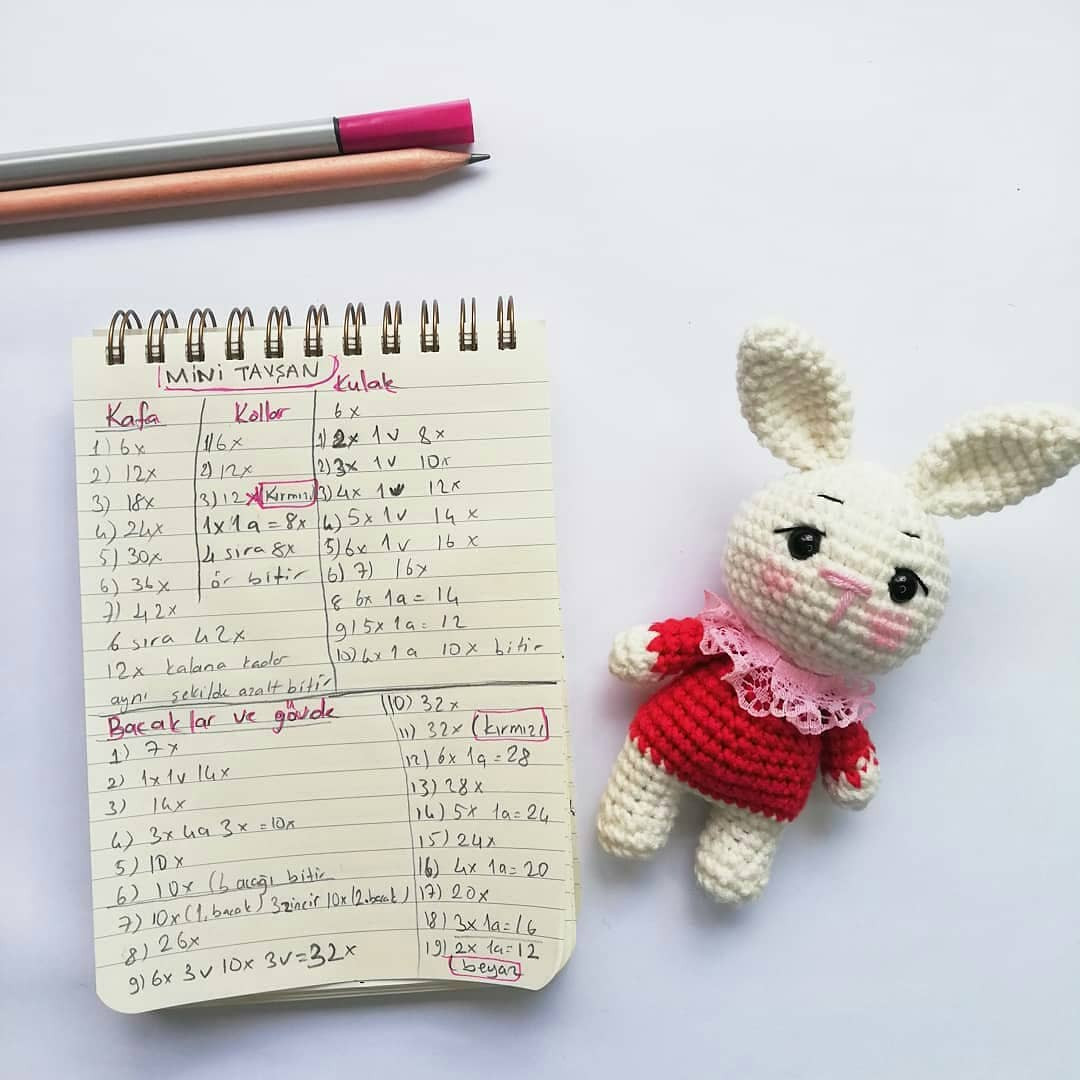 MİNİ TAVŞAN
Kafa
1) 6x
2) 12x
3) 18x
4) 24x
5) 30x
6) 36x
7) 42x
6 sıra 42x
12x kalana kadar
aynı şekilde azalt bitir
Kollar
1) 6x
2) 12x
3) 12x (Kırmızı)
1x 1a = 8x
4 sıra 8x
ör bitir
Kulak
6x
1) 2x 1v 8x
2) 3x 1v 10x
3) 4x 1v 12x
4) 5x 1v 14x
5) 6x 1v 16x
6) 7) 16x
8 6x 1a = 14
9) 5x 1a = 12
10) 4x 1a 10x bitir
Bacaklar ve gövde
1) 7x
2) 1x1v 14x
3) 14x
4) 3x 4a 3x = 10x
5) 10x
6) 10x (bacağı bitir
7) 10x (1. bacak) 3zincir 10x (2. bacak)
8) 26x
9) 6x 3v 10x 3v = 32x
10) 32x
11) 32x (kırmızı)
12) 6x 1a = 28
13) 28x
14) 5x 1a = 24
15) 24x
16) 4x 1a = 20
17) 20x
18) 3x 1a = 16
19) 2x 1a = 12
(beyaz)